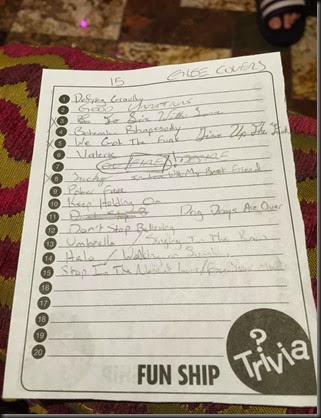 15 GLEE COVERS
1 Defying Gravity
2 Good Vibrations
3 To Sir With Love
4 Bohemian Rhapsody
5 We Got The Funk Give Up The Funk
6 Valerie
7
8 In Love With My Best Friend
9 Poker Face
10 Keep Holding On
11 Dog Days Are Over
12 Don't Stop Believing
13 Umbrella / Singing In The Rain
14 Halo / Walking on Sunshine
15 Stop In The Name of Love /
16
17
18
19
20
FUN SHIP
? Trivia